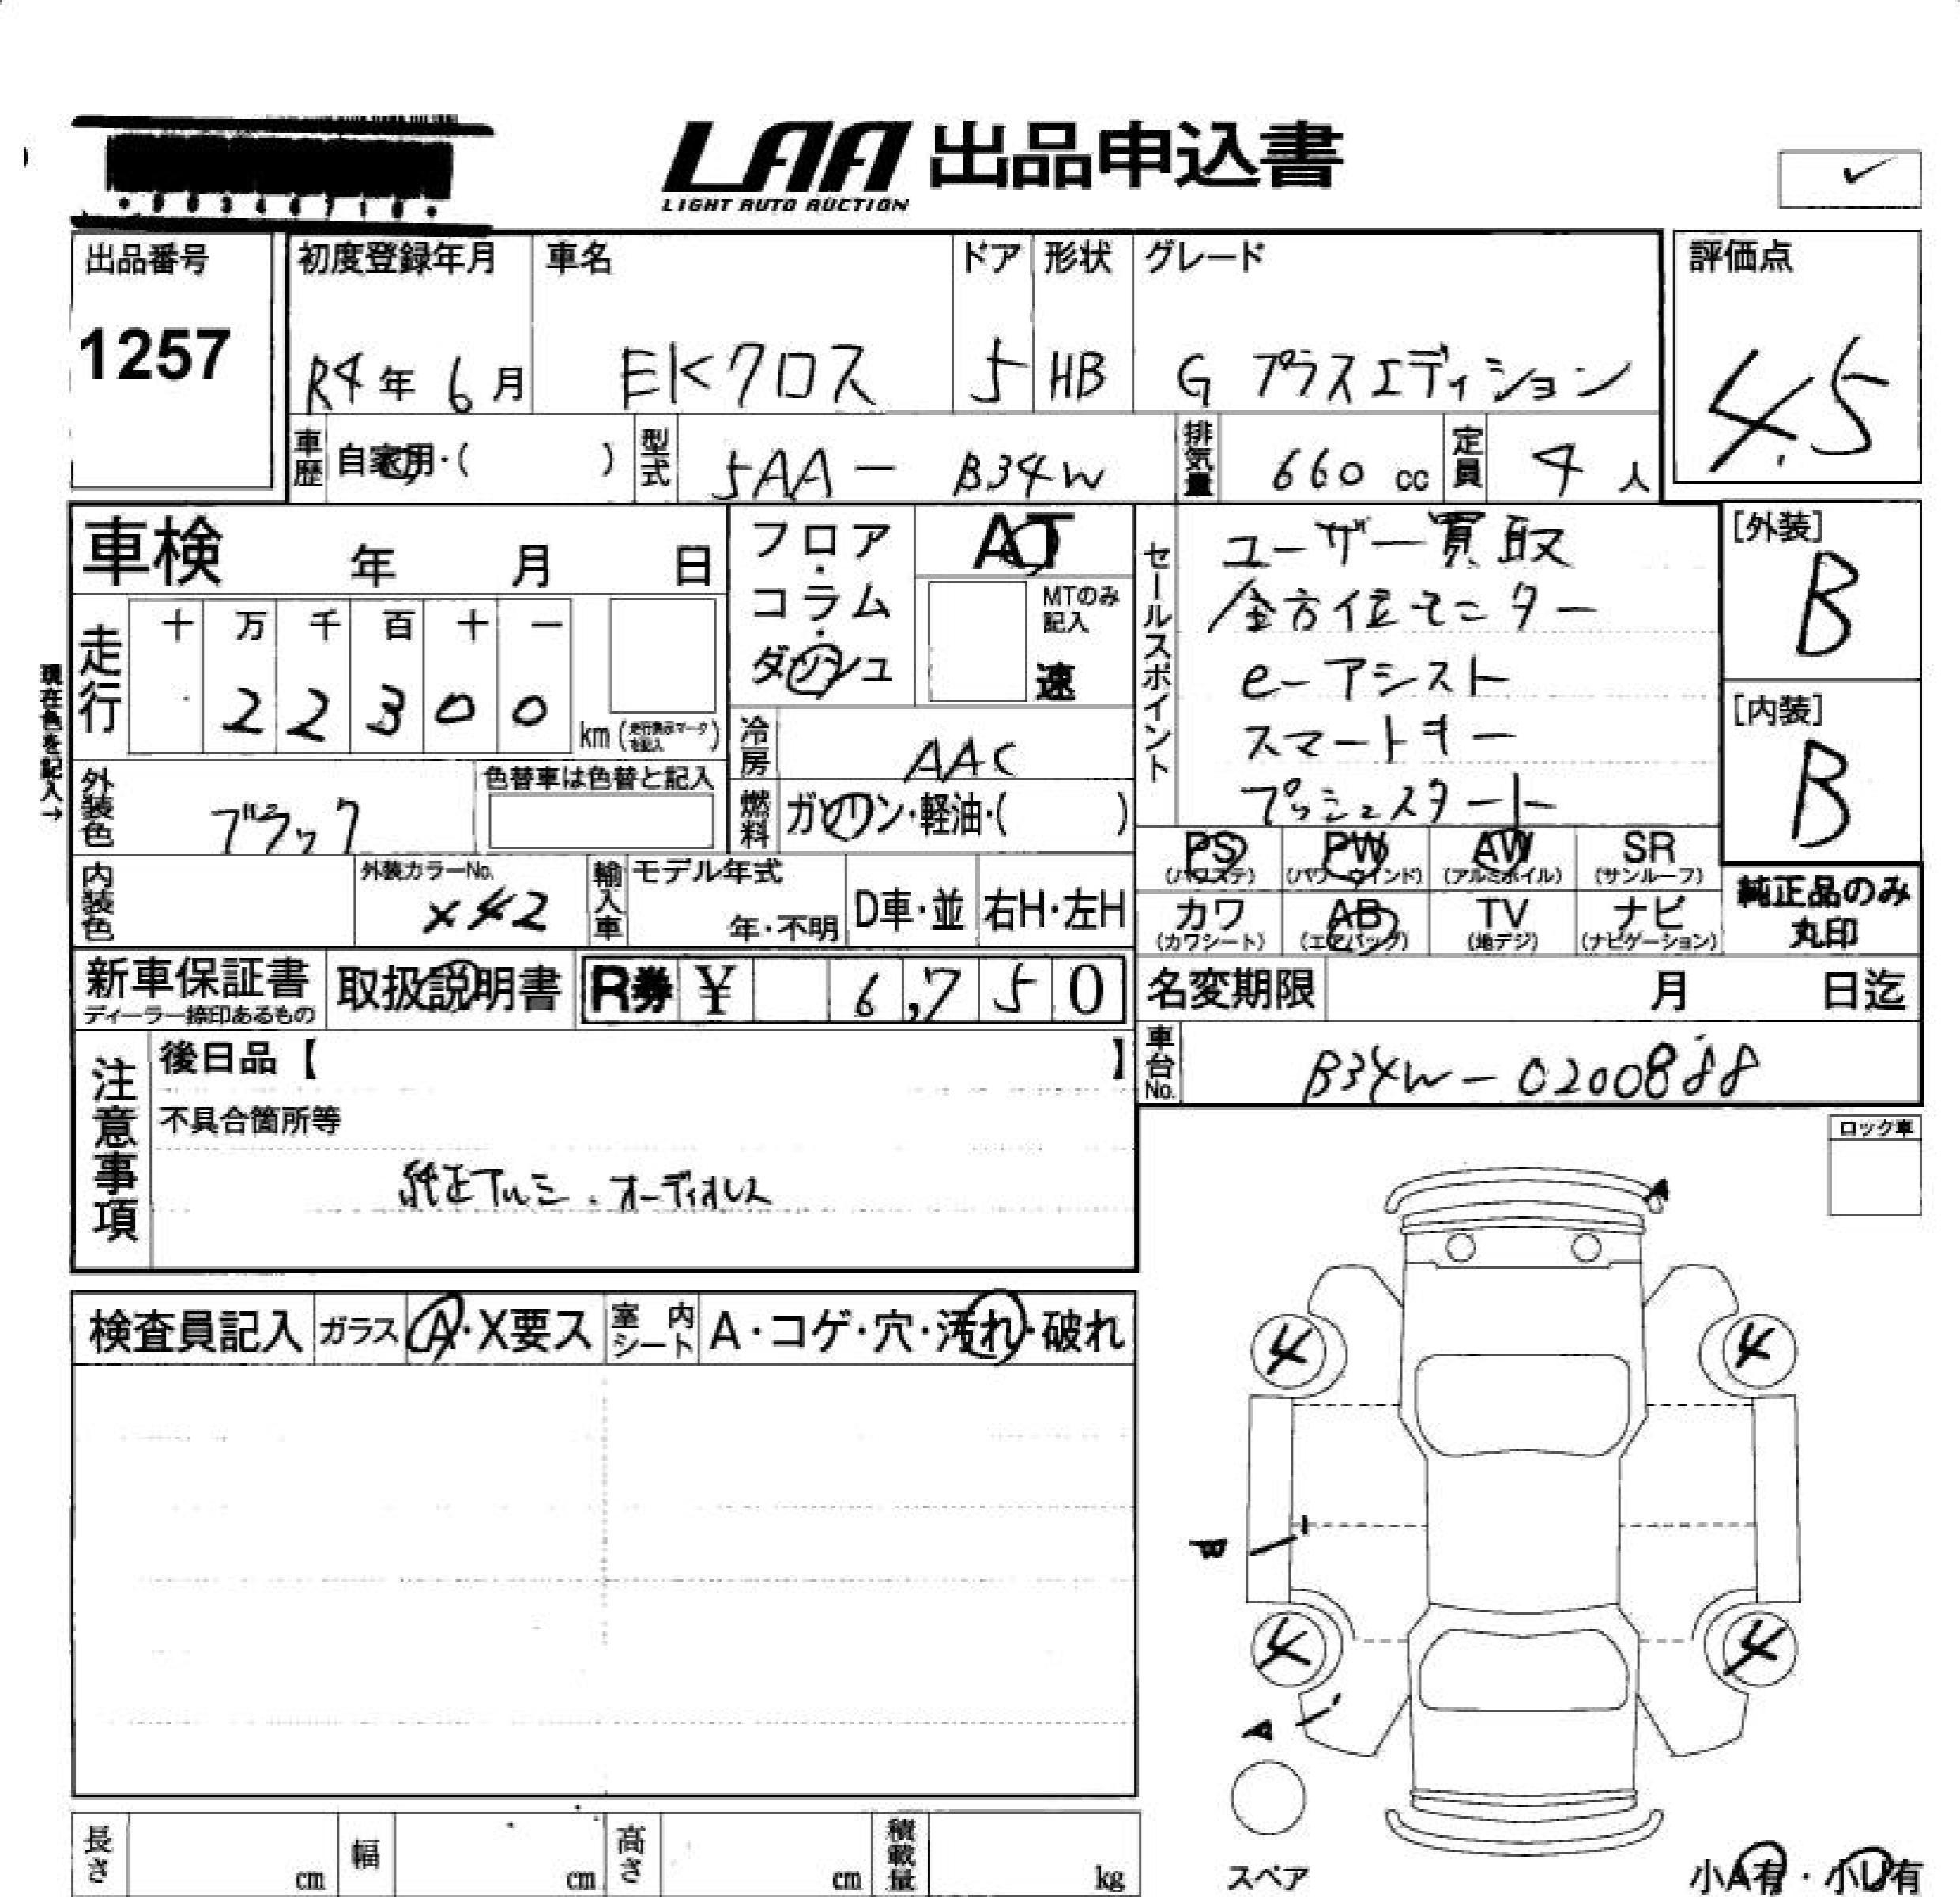 LAA 出品申込書
LIGHT AUTO AUCTION
出品番号
1257
初度登録年月
R4年 6月
車名
EKクロス
ドア
5
形状
HB
グレード
G プラスエディション
評価点
4.5
車歴
自家用・( )
型式
5AA - B34W
排気量
660 cc
定員
4 人
車検 年 月 日
フロア・コラム・ダッシュ
AT
MTのみ記入
速
セールスポイント
ユーザー買取
全方位モニター
e-アシスト
スマートキー
プッシュスタート
[外装]
B
[内装]
B
現在色を記入→
走行
十 万 千 百 十 一
2 2 3 0 0
km (走行表示マークを記入)
冷房
AAC
外装色
ブラック
色替車は色替と記入
燃料
ガソリン・軽油・( )
PS
(パワステ)
PW
(パワーウインド)
AW
(アルミホイル)
SR
(サンルーフ)
カワ
(カワシート)
AB
(エアバッグ)
TV
(地デジ)
ナビ
(ナビゲーション)
純正品のみ
丸印
内装色
外装カラーNo.
X42
輸入車
モデル年式
年・不明
D車・並
右H・左H
新車保証書
ディーラー捺印あるもの
取扱説明書
R券 ¥ 6,750
名変期限 月 日迄
車台No.
B34W-0200888
注意事項
後日品【 】
不具合箇所等
純正アルミ.オーディオレス
ロック車
検査員記入
ガラス
A・X要ス
室内シート
A・コゲ・穴・汚れ・破れ
A
4
4
4
4
A
スペア
小A有・小U有
長さ
cm
幅
cm
高さ
cm
積載量
kg